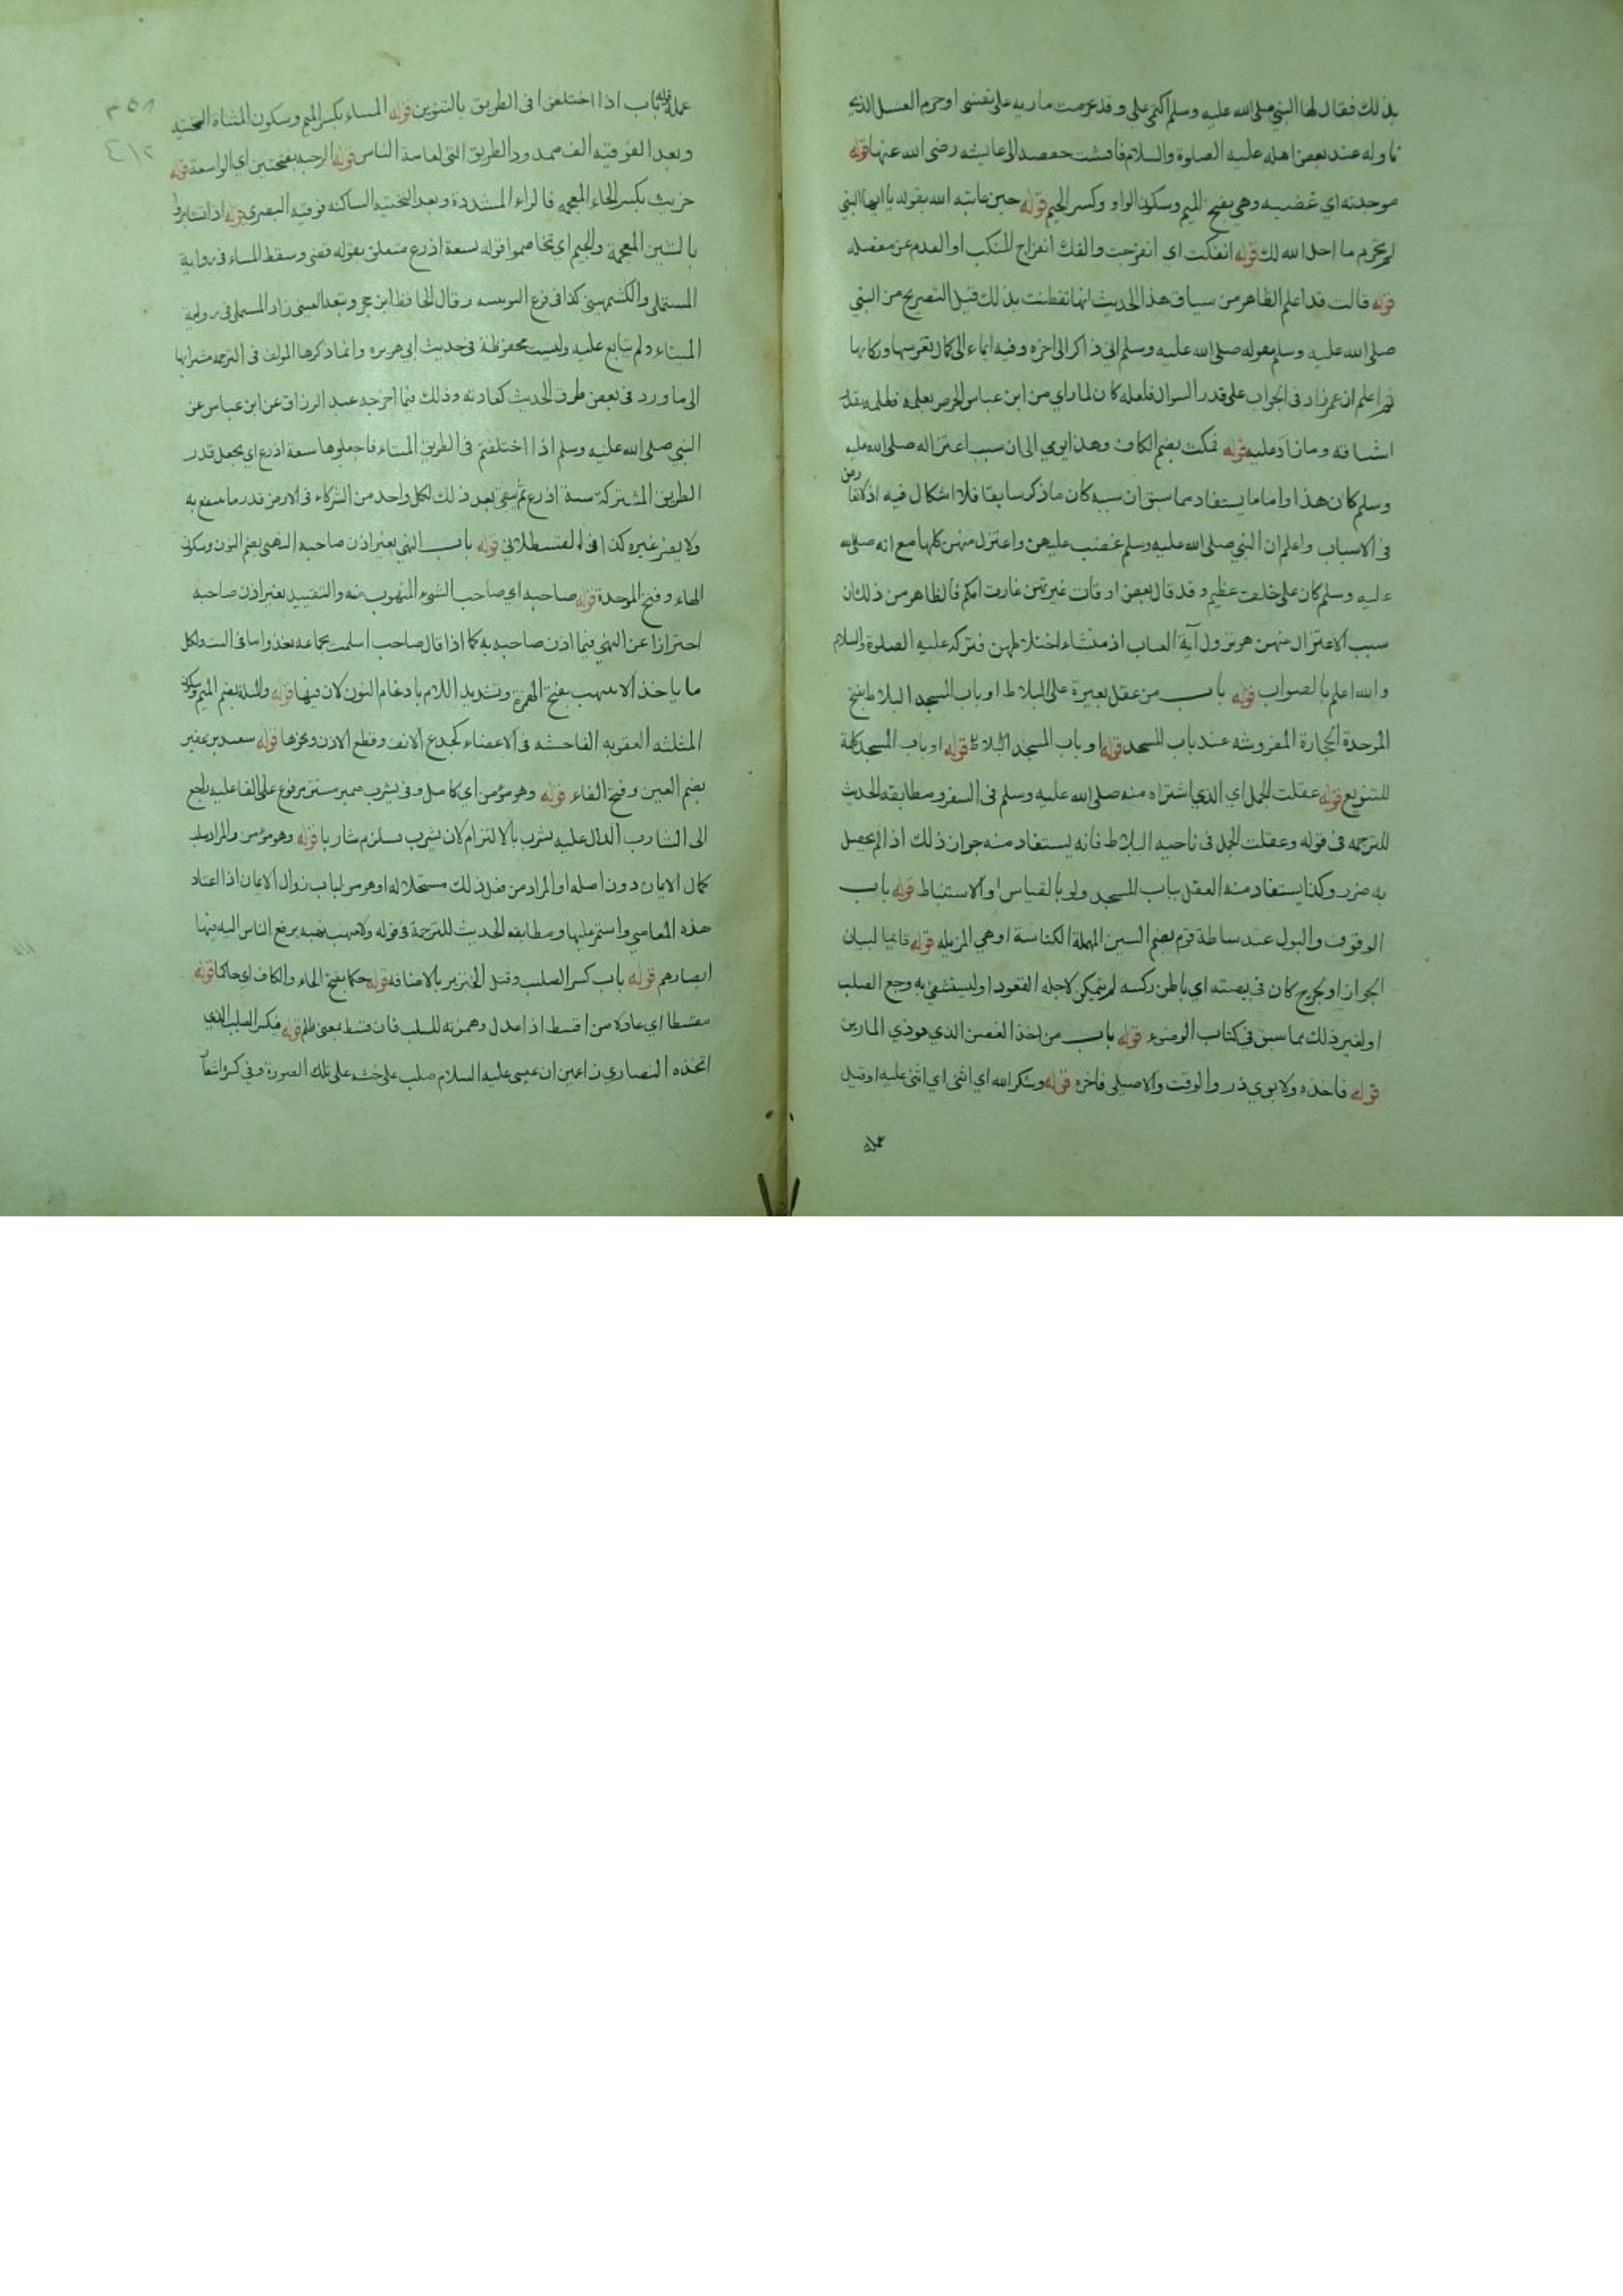 بذلك فقال لها النبي صلى الله عليه وسلم اكتمي علي وقد حرمت مارية على نفسي او حرم العسل الذي
تناوله عند بعض اهله عليه الصلوة والسلام فافشت حفصه الى عايشه رضى الله عنها قوله
موجدته اي غضبه وهي بفتح الميم وسكون الواو وكسر الجيم قوله حين عاتبه الله بقوله يا ايها النبي
لم تحرم ما احل الله لك قوله انفكت اي انفرجت والفك انفراج المنكب او القدم عن مفصله
قوله قالت قد اعلم الظاهر من سياق هذا الحديث انها تفطنت بذلك قبل التصريح من النبي
صلى الله عليه وسلم بقوله صلى الله عليه وسلم اني ذاكر الى اخره وفيه ايماء الى كمال تفرسها وذكائها
ثم اعلم ان عمر زاد في الجواب على قدر السوال فلعله كان لما راي من ابن عباس الحرص بعلمه
وما زاد عليه قوله فمكث بضم الكاف وهذا يومي الى ان سبب اعتزاله صلى الله عليه
وسلم كان هذا واما ما يستفاد مما سبق ان سببه كان ما ذكر سابقا فلا اشكال فيه اذ لا تعارض
في الاسباب واعلم ان النبي صلى الله عليه وسلم غضب عليهن واعتزل منهن كلها مع انه صلى الله
عليه وسلم كان على خلق عظيم وقد قال بعض اوقات غيرتهن غارت امكم فالظاهر من ذلك ان
سبب الاعتزال منهن هو نزول آية اذ منشاء اختلاطهن فتركه عليه الصلوة والسلام
والله اعلم بالصواب قوله باب من عقل بعيرة على البلاط او باب المسجد البلاط بفتح
الموحدة الحجارة المفروشه عند باب المسجد قوله او باب المسجد البلاط قوله او باب المسجد كلمة
للتنويع قوله عقلت الجمل اي الذي اشتراه منه صلى الله عليه وسلم في السفر ومطابقه الحديث
للترجمه في قوله وعقلت الجمل في ناحيه البلاط فانه يستفاد منه جواز ذلك اذا لم يحصل
به ضرر وكذا يستفاد منه العقل بباب المسجد ولو بالقياس او الاستنباط قوله باب
الوقوف والبول عند سباطة قوم بضم السين المهملة الكناسة او هي المزبله قوله قايما لبيان
الجواز او لجرح كان في اي باطن ركبته لم يتمكن لاجله القعود او ليستشفي به وجع الصلب
او لغير ذلك مما سبق في كتاب الوضوء قوله باب من اخذ الغصن الذي يوذي المارين
قوله فاخذه ولابوي ذر والوقت والاصيلي فاخره قوله وشكر الله اي اثنى اي اثنى عليه او قبل
عمله
عمله قوله باب اذا اختلفوا في الطريق بالتنوين قوله الميتاء بكسر الميم وسكون المثناة التحتيه
وبعد الفوقيه الف ممدود الطريق التي لعامة الناس قوله الرحبه بفتحتين اي الواسعة قوله
خريث بكسر الخاء المعجمه فالراء المشددة وبعد التحتيه الساكنه فوقيه البصري قوله اذا تشاجروا
بالشين المعجمة والجيم اي تخاصموا قوله بسعة اذرع متعلق بقوله قضى وسقط الميتاء في رواية
المستملي والكشميهني كذا في فرع اليونينيه وقال الحافظ ابن حجر وتبعه العيني زاد المستملي في روايته
الميتاء ولم يتابع عليه وليست محفوظة في حديث ابي هريره وانما ذكرها المولف في الترجمه مشيرا بها
الى ما ورد في بعض طرق الحديث كعادته وذلك فيما اخرجه عبد الرزاق عن ابن عباس عن
النبي صلى الله عليه وسلم اذا اختلفتم في الطريق الميتاء فاجعلوها سبعة اذرع اي يجعل قدر
الطريق المشتركة سبعة اذرع ثم يبقى بعد ذلك لكل واحد من الشركاء في الارض قدر ما ينتفع به
ولا يضر غيره كذا في القسطلاني قوله باب النهبى بغير اذن صاحبه النهبى بضم النون وسكون
الهاء وفتح الموحدة قوله صاحبه اي صاحب الشيء المنهوب منه والتقييد بغير اذن صاحبه
احترازا عن النهبى فيما اذن صاحبه به كما اذا قال صاحب
ما ياخذ الا بفتح الهمزة وتشديد اللام بادغام النون لان فيها قوله والمثلة بضم الميم وسكون
المثلثه العقوبه الفاحشه في الاعضاء كجدع الانف وقطع الاذن ونحوها قوله سعيد بن عفير
بضم العين وفتح الفاء قوله وهو مؤمن اي كامل وفي يشرب ضمير مستتر مرفوع على الفاعليه راجع
الى الشارب الدال عليه يشرب بالالتزام لان يشرب يستلزم شاربا قوله وهو مؤمن والمراد سلب
كمال الايمان دون اصله او المراد من فعل ذلك مستحلا له او هو من باب زوال الايمان اذا اعتاد
هذه المعاصي واستمر عليها ومطابقه الحديث للترجمة في قوله ولا ينهب نهبه يرفع الناس اليه فيها
ابصارهم قوله باب كسر الصليب وقتل الخنزير بالاضافة قوله حكما بفتح الحاء والكاف اي حاكما قوله
مقسطا اي عادلا من اقسط اذا عدل وهمزته للسلب فان قسط بمعنى ظلم قوله فيكسر الصليب الذي
اتخذه النصاري زاعمين ان عيسى عليه السلام صلب على خشبه على تلك الصورة وفي كسره اشعار